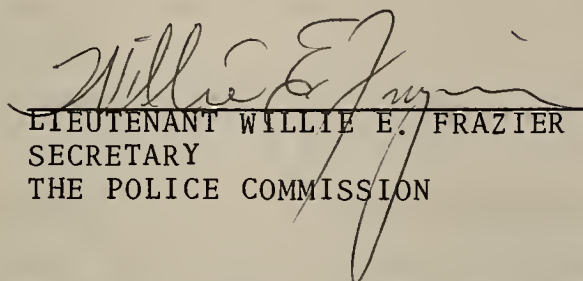 Willie E. Frazier
LIEUTENANT WILLIE E. FRAZIER
SECRETARY
THE POLICE COMMISSION